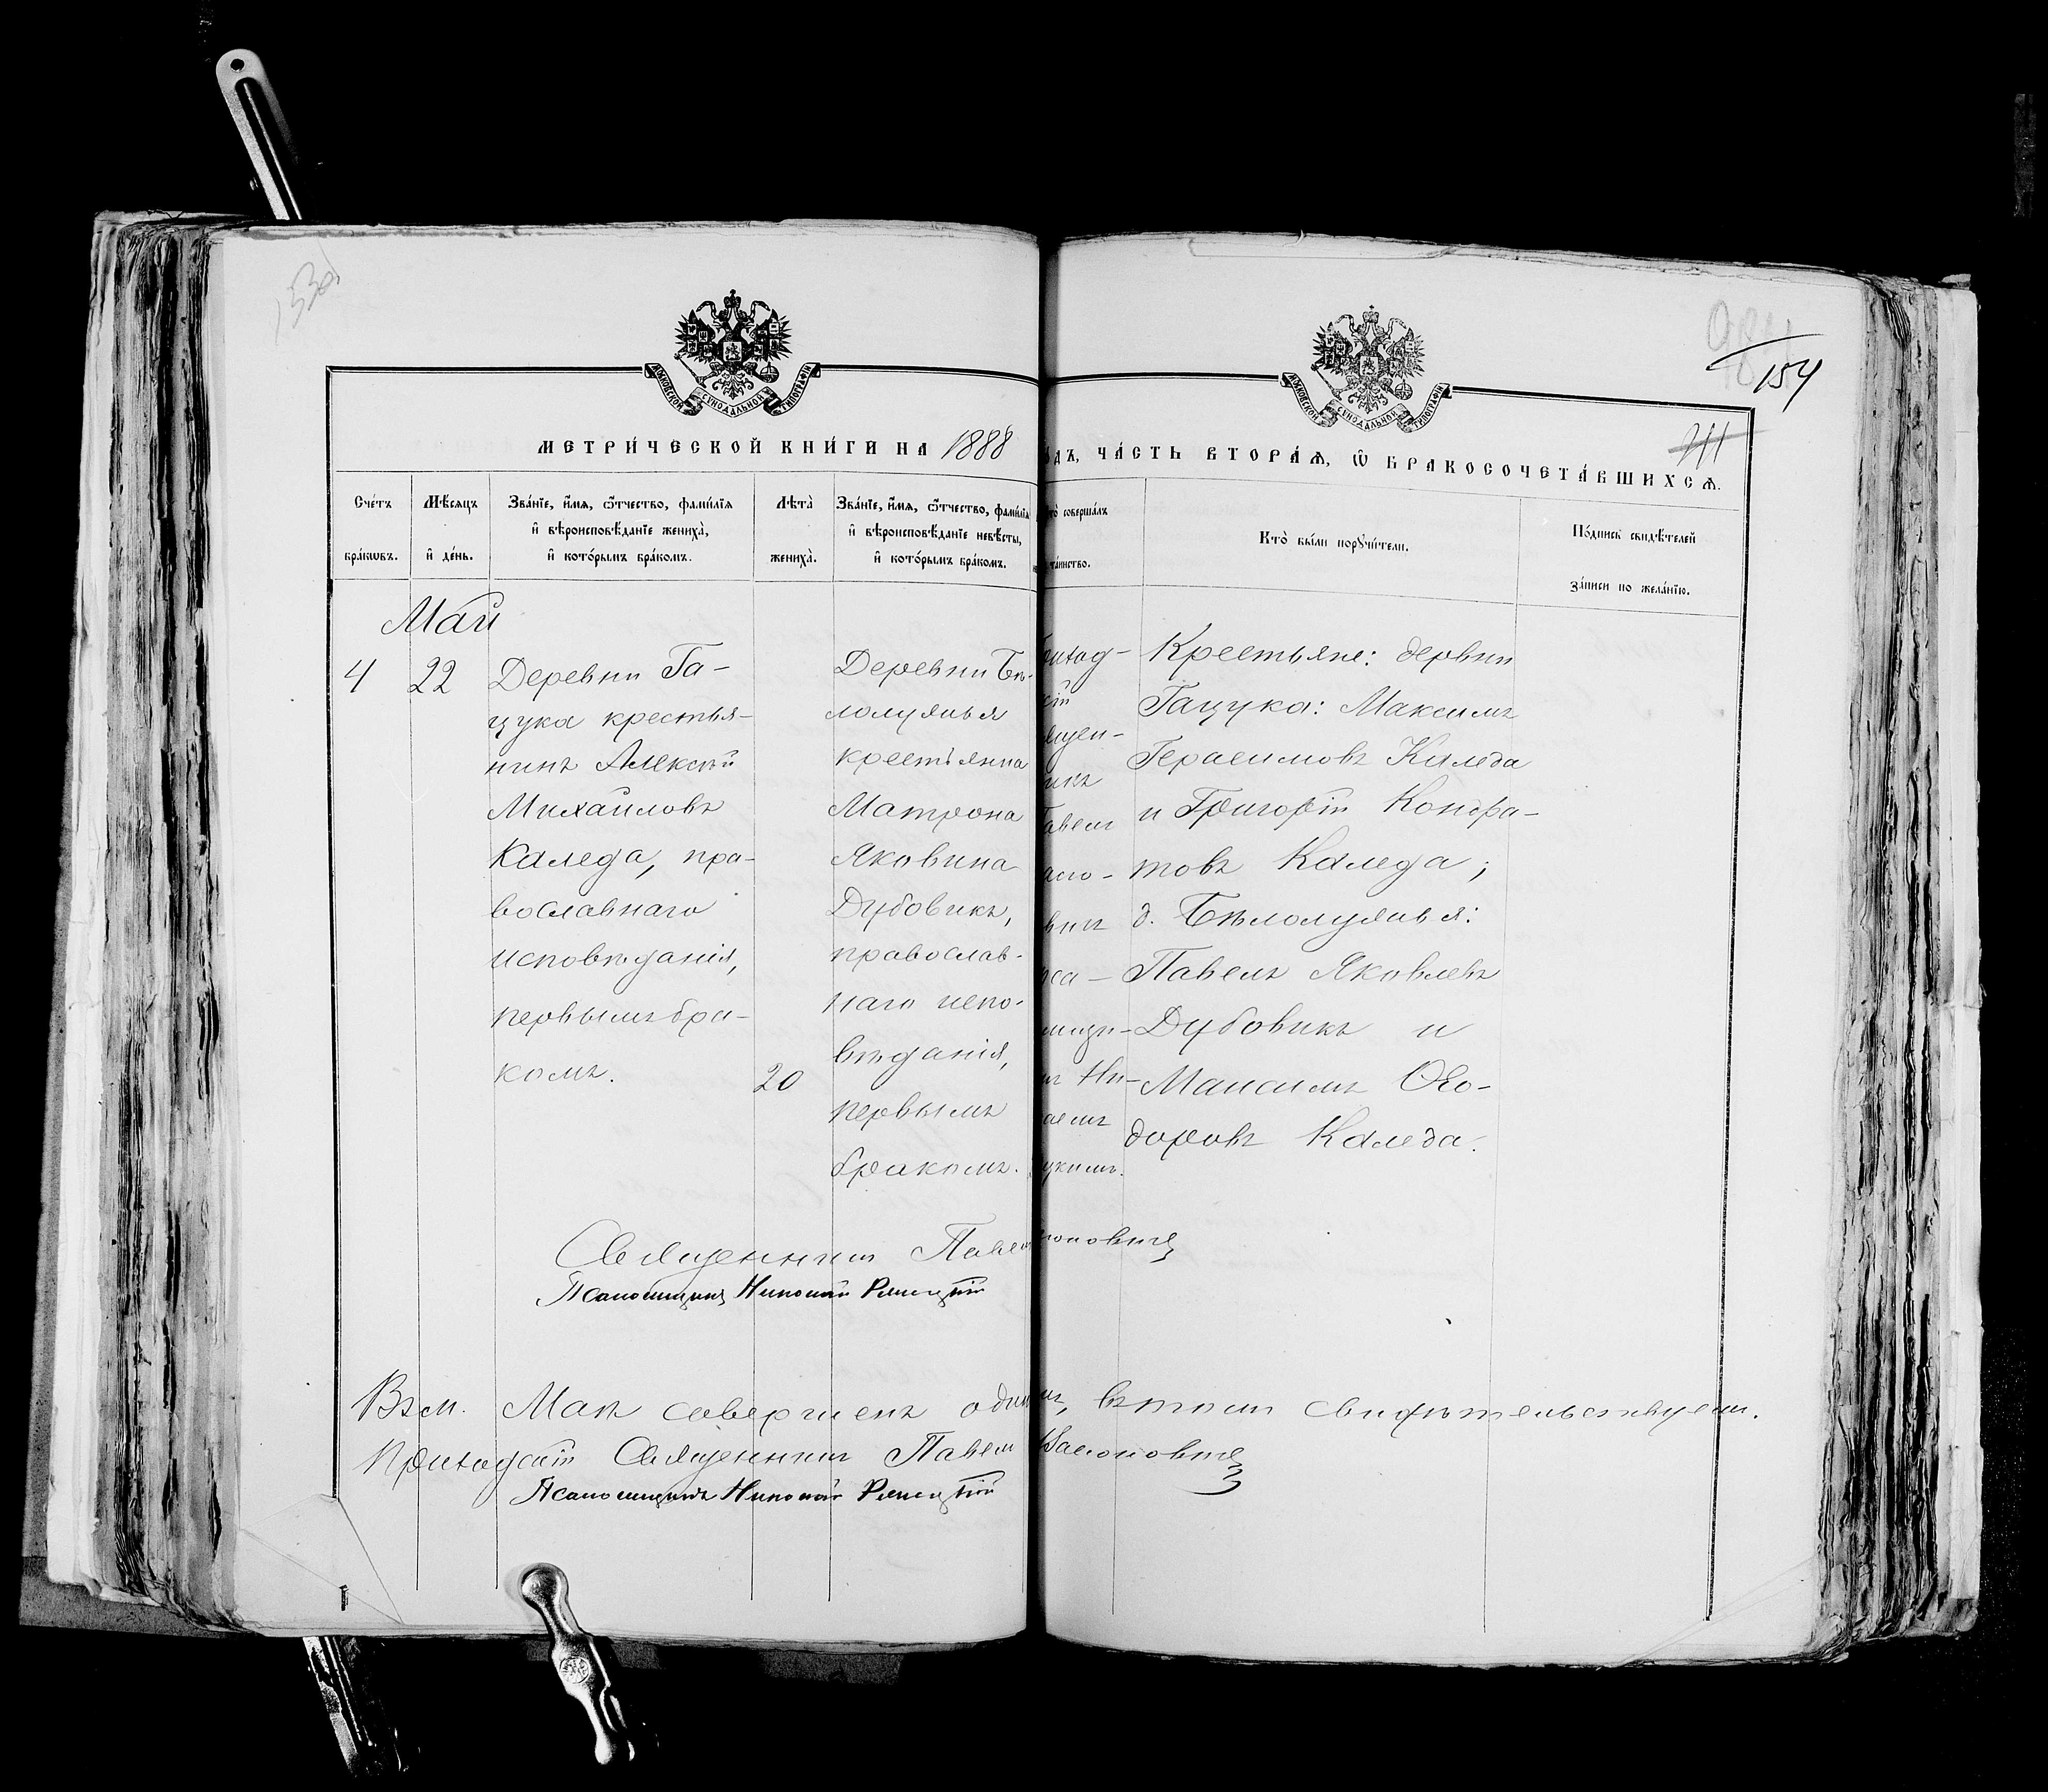 153об
154
711
МОСКОВСКОЙ СѴНОДАЛЬНОЙ ТИПОГРАФІИ
МОСКОВСКОЙ СѴНОДАЛЬНОЙ ТИПОГРАФІИ
МЕТРИ́ЧЕСКОЙ КНИ́ГИ НА 1888
одъ, ЧА́СТЬ ВТОРА́Ѧ, Ѽ БРАКОСОЧЕТА́ВШИХСѦ.
Сче́тъ бра́кѡвъ.
Мѣ́сѧцъ и҆ де́нь.
Зва́нїе, и҆́мѧ, ѻ҆́тчество, фами́лїѧ
и҆ вѣроисповѣ́данїе жениха̀,
и҆ кото́рымъ бра́комъ.
Лѣта̀ жениха̀.
Зва́нїе, и҆́мѧ, ѻ҆́тчество, фами́лїѧ
и҆ вѣроисповѣ́данїе невѣ́сты,
и҆ кото́рымъ бра́комъ.
то̀ соверша́лъ
та́инство.
Кто̀ бы́ли порꙋчи́тели.
По́дпись свидѣ́телей
за́писи по жела́нїю.
Май
4
22
Деревни Га-
цука крестья-
нинъ Алексѣй
Михаиловъ
Каледа, пра-
вославнаго
исповѣданія,
первымъ бра-
комъ.
20
Деревни Бѣ-
лолуянья
крестьянка
Матрона
Яковина
Дубовикъ,
православ-
наго испо-
вѣданія,
первымъ
бракомъ.
риход-
скій
ящен-
икъ
авелъ
асо-
вичъ
пса-
мщи-
мъ Ни-
аемъ
цкимъ.
Крестьяне: дервни
Гацука: Максимъ
Герасимовъ Каледа
и Григорій Кондра-
товъ Каледа;
д. Бѣлолуянья:
Павелъ Яковлевъ
Дубовикъ и
Максимъ Ѳео-
доровъ Каледа.
Священникъ Павел оновичъ
Псаломщикъ Николай
Въ м. Маѣ совершенъ одинъ, въ томъ свидѣтельствуемъ.
Приходскій Священникъ Павел
Псаломщикъ Николай